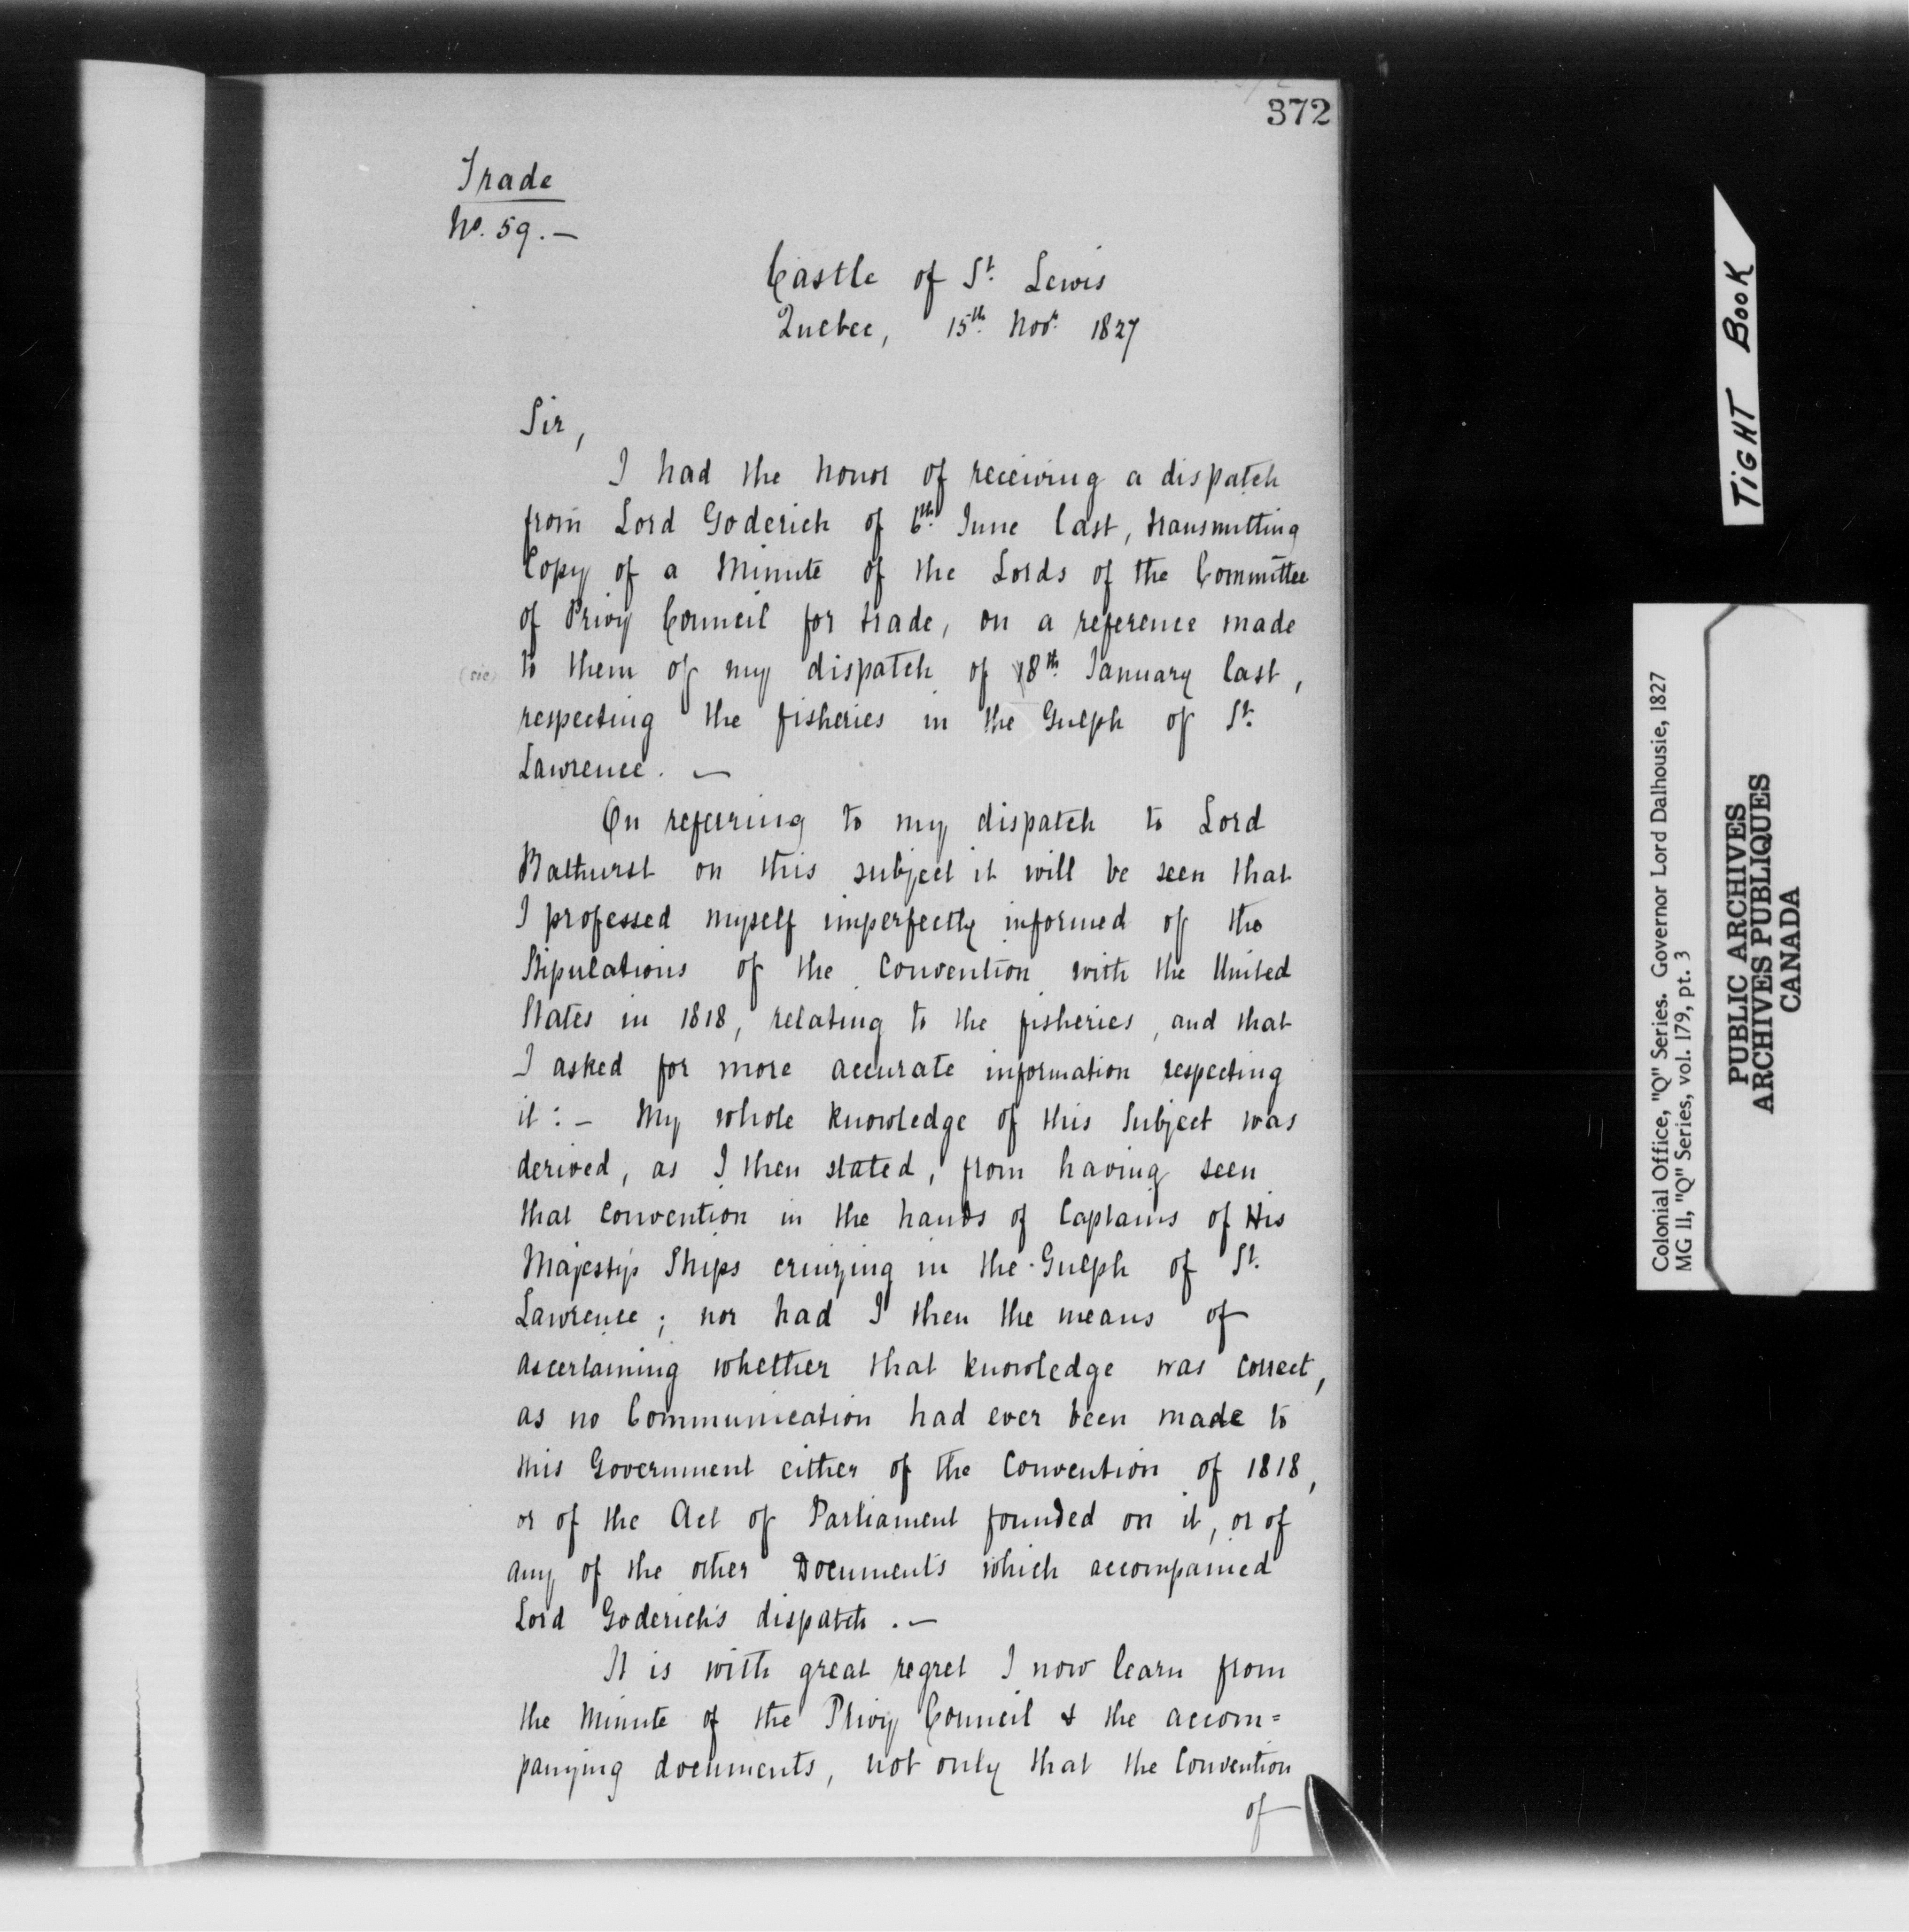 372
Trade
No. 59.—
Castle of St. Lewis
Quebec, 15th Novr. 1827
Sir,
I had the honor of receiving a dispatch
from Lord Goderich of 6th June last, transmitting
Copy of a Minute of the Lords of the Committee
of Privy Council for trade, on a reference made
(sic) to them of my dispatch of 18th January last,
respecting the fisheries in the Gulph of St.
Lawrence. —
On referring to my dispatch to Lord
Bathurst on this subject it will be seen that
I professed myself imperfectly informed of the
Stipulations of the Convention with the United
States in 1818, relating to the fisheries, and that
I asked for more accurate information respecting
it:— My whole knowledge of this Subject was
derived, as I then stated, from having seen
that Convention in the hands of Captains of His
Majesty's Ships cruizing in the Gulph of St.
Lawrence; nor had I then the means of
ascertaining whether that knowledge was correct,
as no Communication had ever been made to
this Government either of the Convention of 1818,
or of the Act of Parliament founded on it, or of
any of the other Documents which accompanied
Lord Goderich's dispatch.—
It is with great regret I now learn from
the Minute of the Privy Council & the accom=
panying documents, not only that the Convention
of
TIGHT BOOK
Colonial Office, "Q" Series. Governor Lord Dalhousie, 1827
MG 11, "Q" Series, vol. 179, pt. 3
PUBLIC ARCHIVES
ARCHIVES PUBLIQUES
CANADA